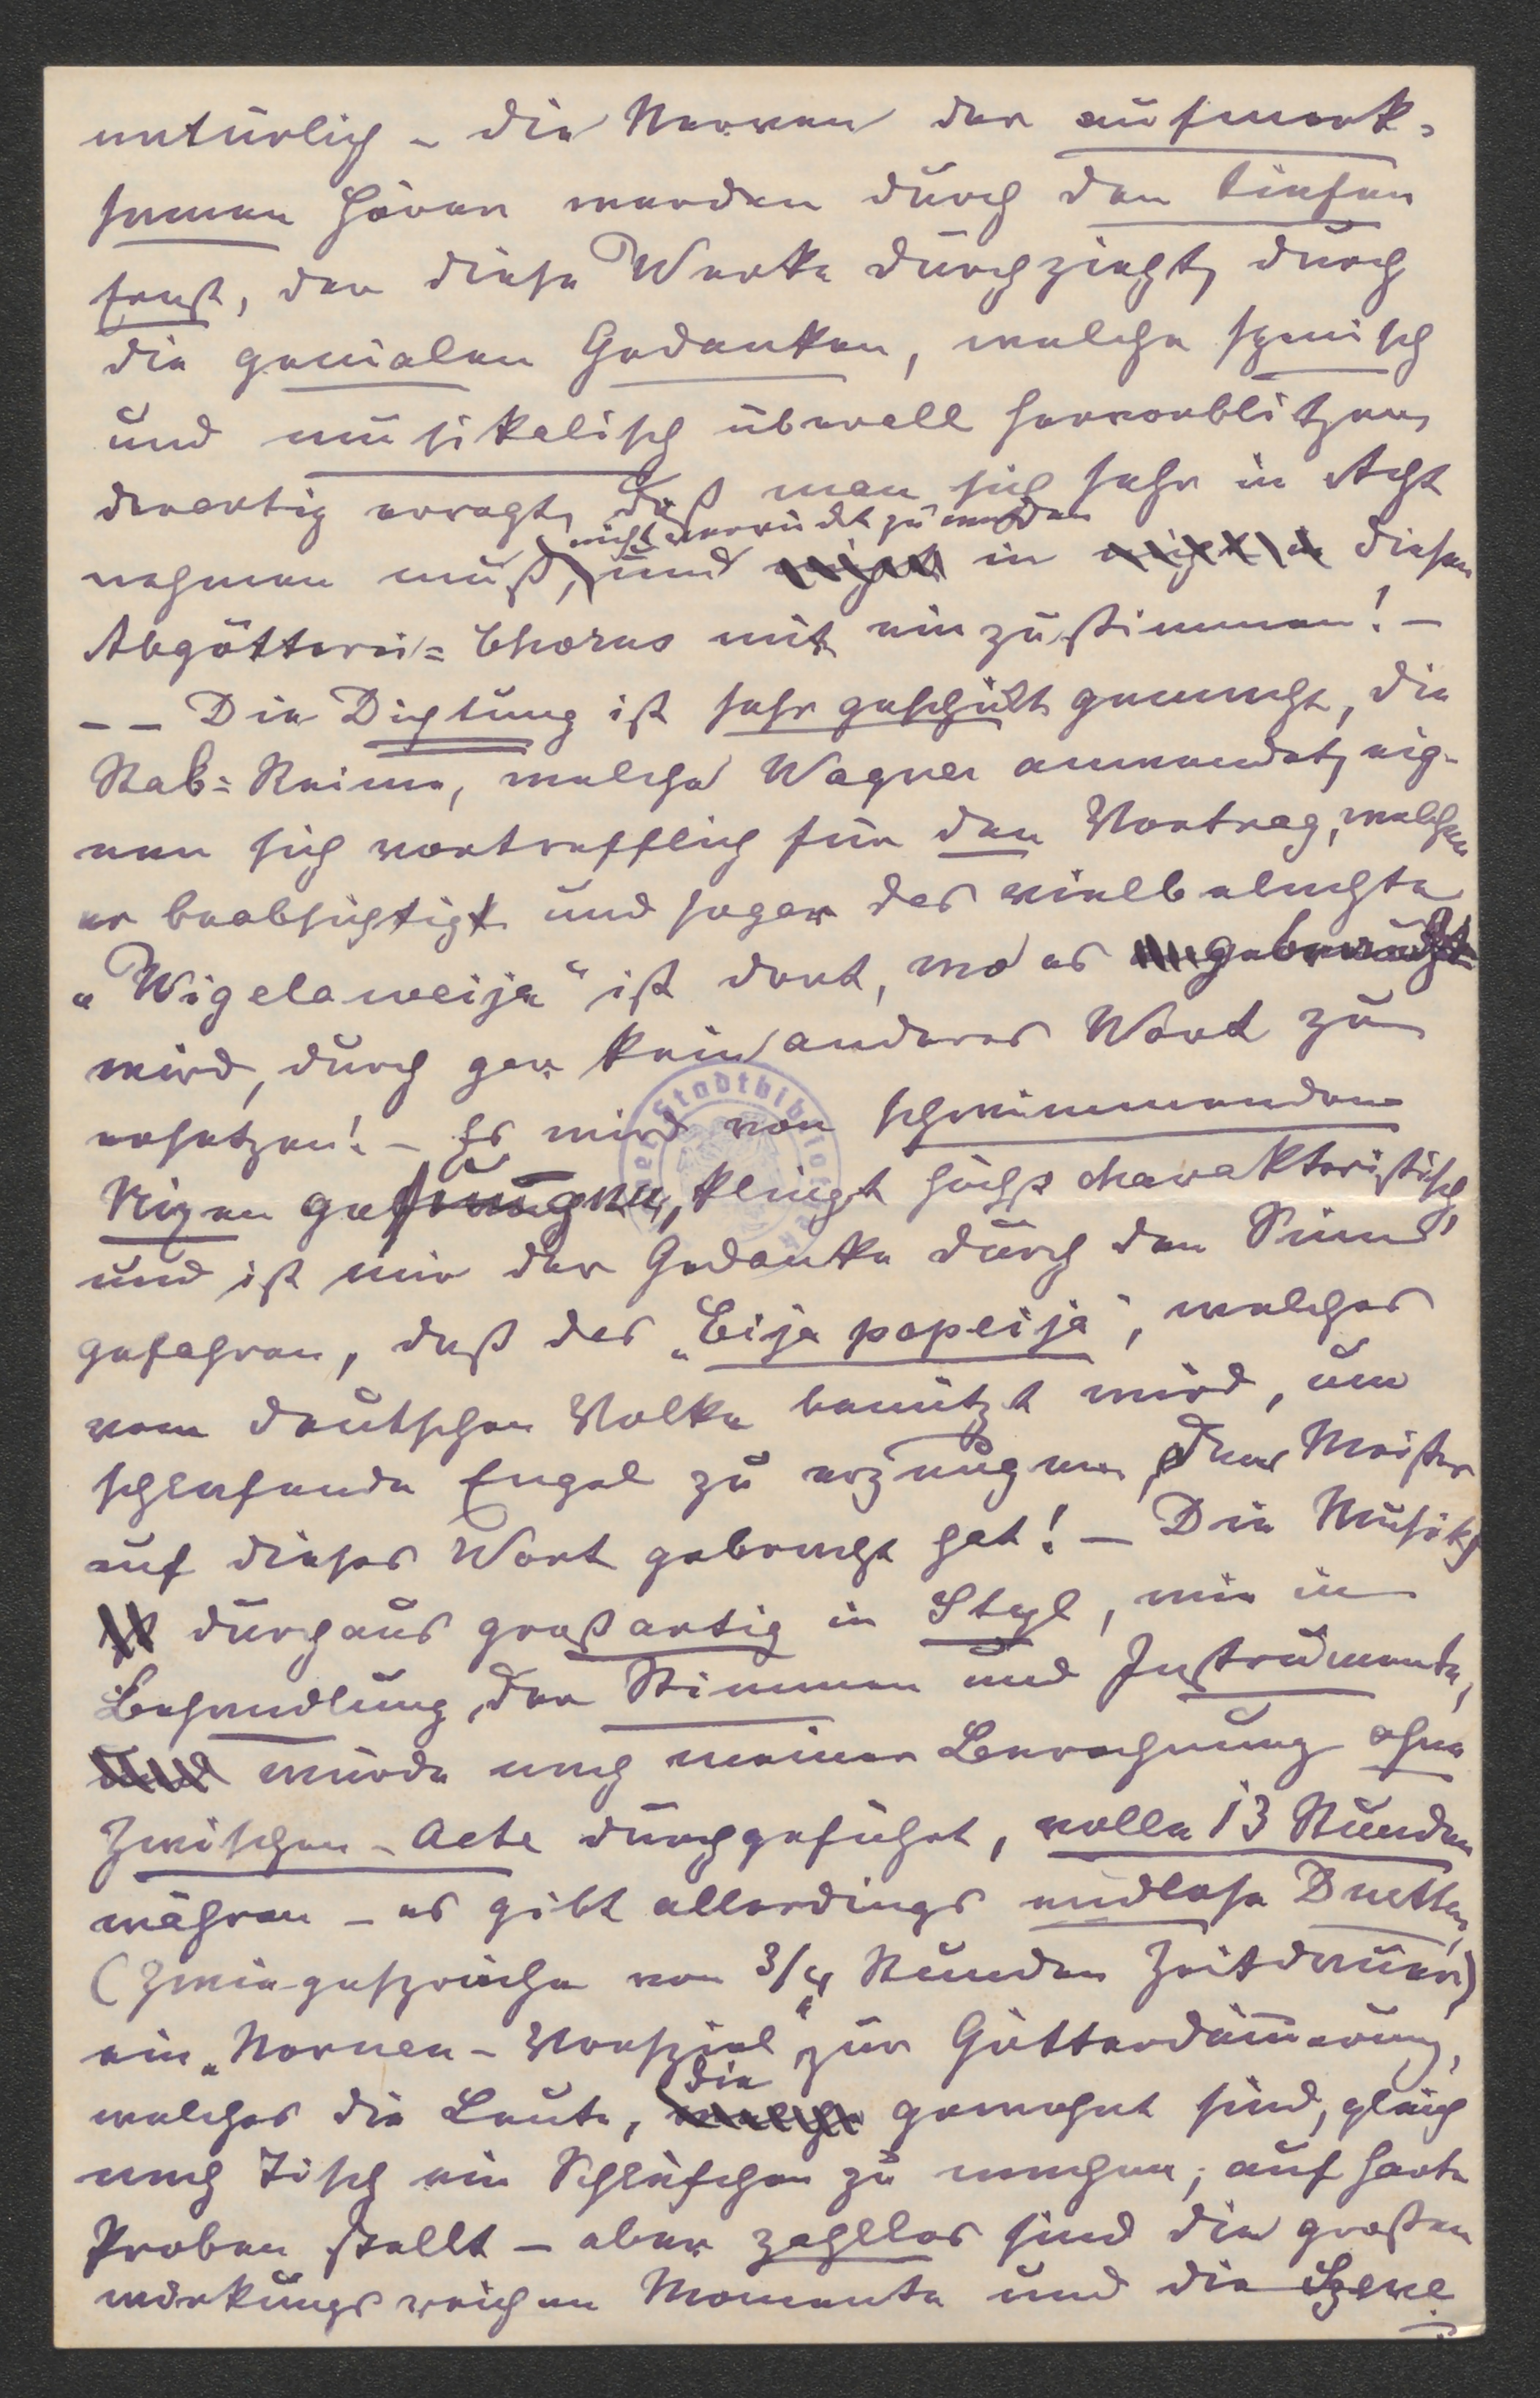 natürlich - die Nerven der aufmerk=
samen Hörer werden durch den tiefen
Ernst, der diese Werke durchzieht, durch
die genialen Gedanken, welche szenisch
und musikalisch überall hervorblitzen,
derartig erregt, daß man sich sehr in Acht
nicht verrückt zu werden
nehmen muß, und nicht in diesen
Abgötterei=Chorus mit einzustimmen! -
-- Die Dichtung ist sehr geschickt gemacht, die
Stab=Reime, welche Wagner anwendet, eig-
nen sich vortrefflich für den Vortrag, welchen
er beabsichtigt und sogar das vielbelachte
„Wigelaweija“ ist dort, wo es gebraucht
wird, durch gar kein anderes Wort zu
ersetzen! - Es wird von schwimmenden
Nixen gesungen, klingt höchst charakteristisch,
und ist mir der Gedanke durch den Sinn
gefahren, daß das „Eija popeija“, welches
vom deutschen Volke benützt wird, um
schlafende Engel zu erzeugen, den Meister
auf dieses Wort gebracht hat! - Die Musik,
ist durchaus großartig in Styl, wie in
Behandlung der Stimmen und Instrumente,
und würde nach meiner Berechnung ohne
Zwischen-Acte durchgeführt, volle 13 Stunden
währen - es gibt allerdings endlose Duette,
(Zwiegespräche von 3/4 Stunden Zeitdauer)
ein „Nornen-Vorspiel“ zur Götterdämerung,
die
welches die Leute, welche gewohnt sind, gleich
nach Tisch ein Schläfchen zu machen, auf harte
Proben stellt - aber zahllos sind die großen
wirkungsreichen Momente und die Szene
Wiener Stadtbibliothek